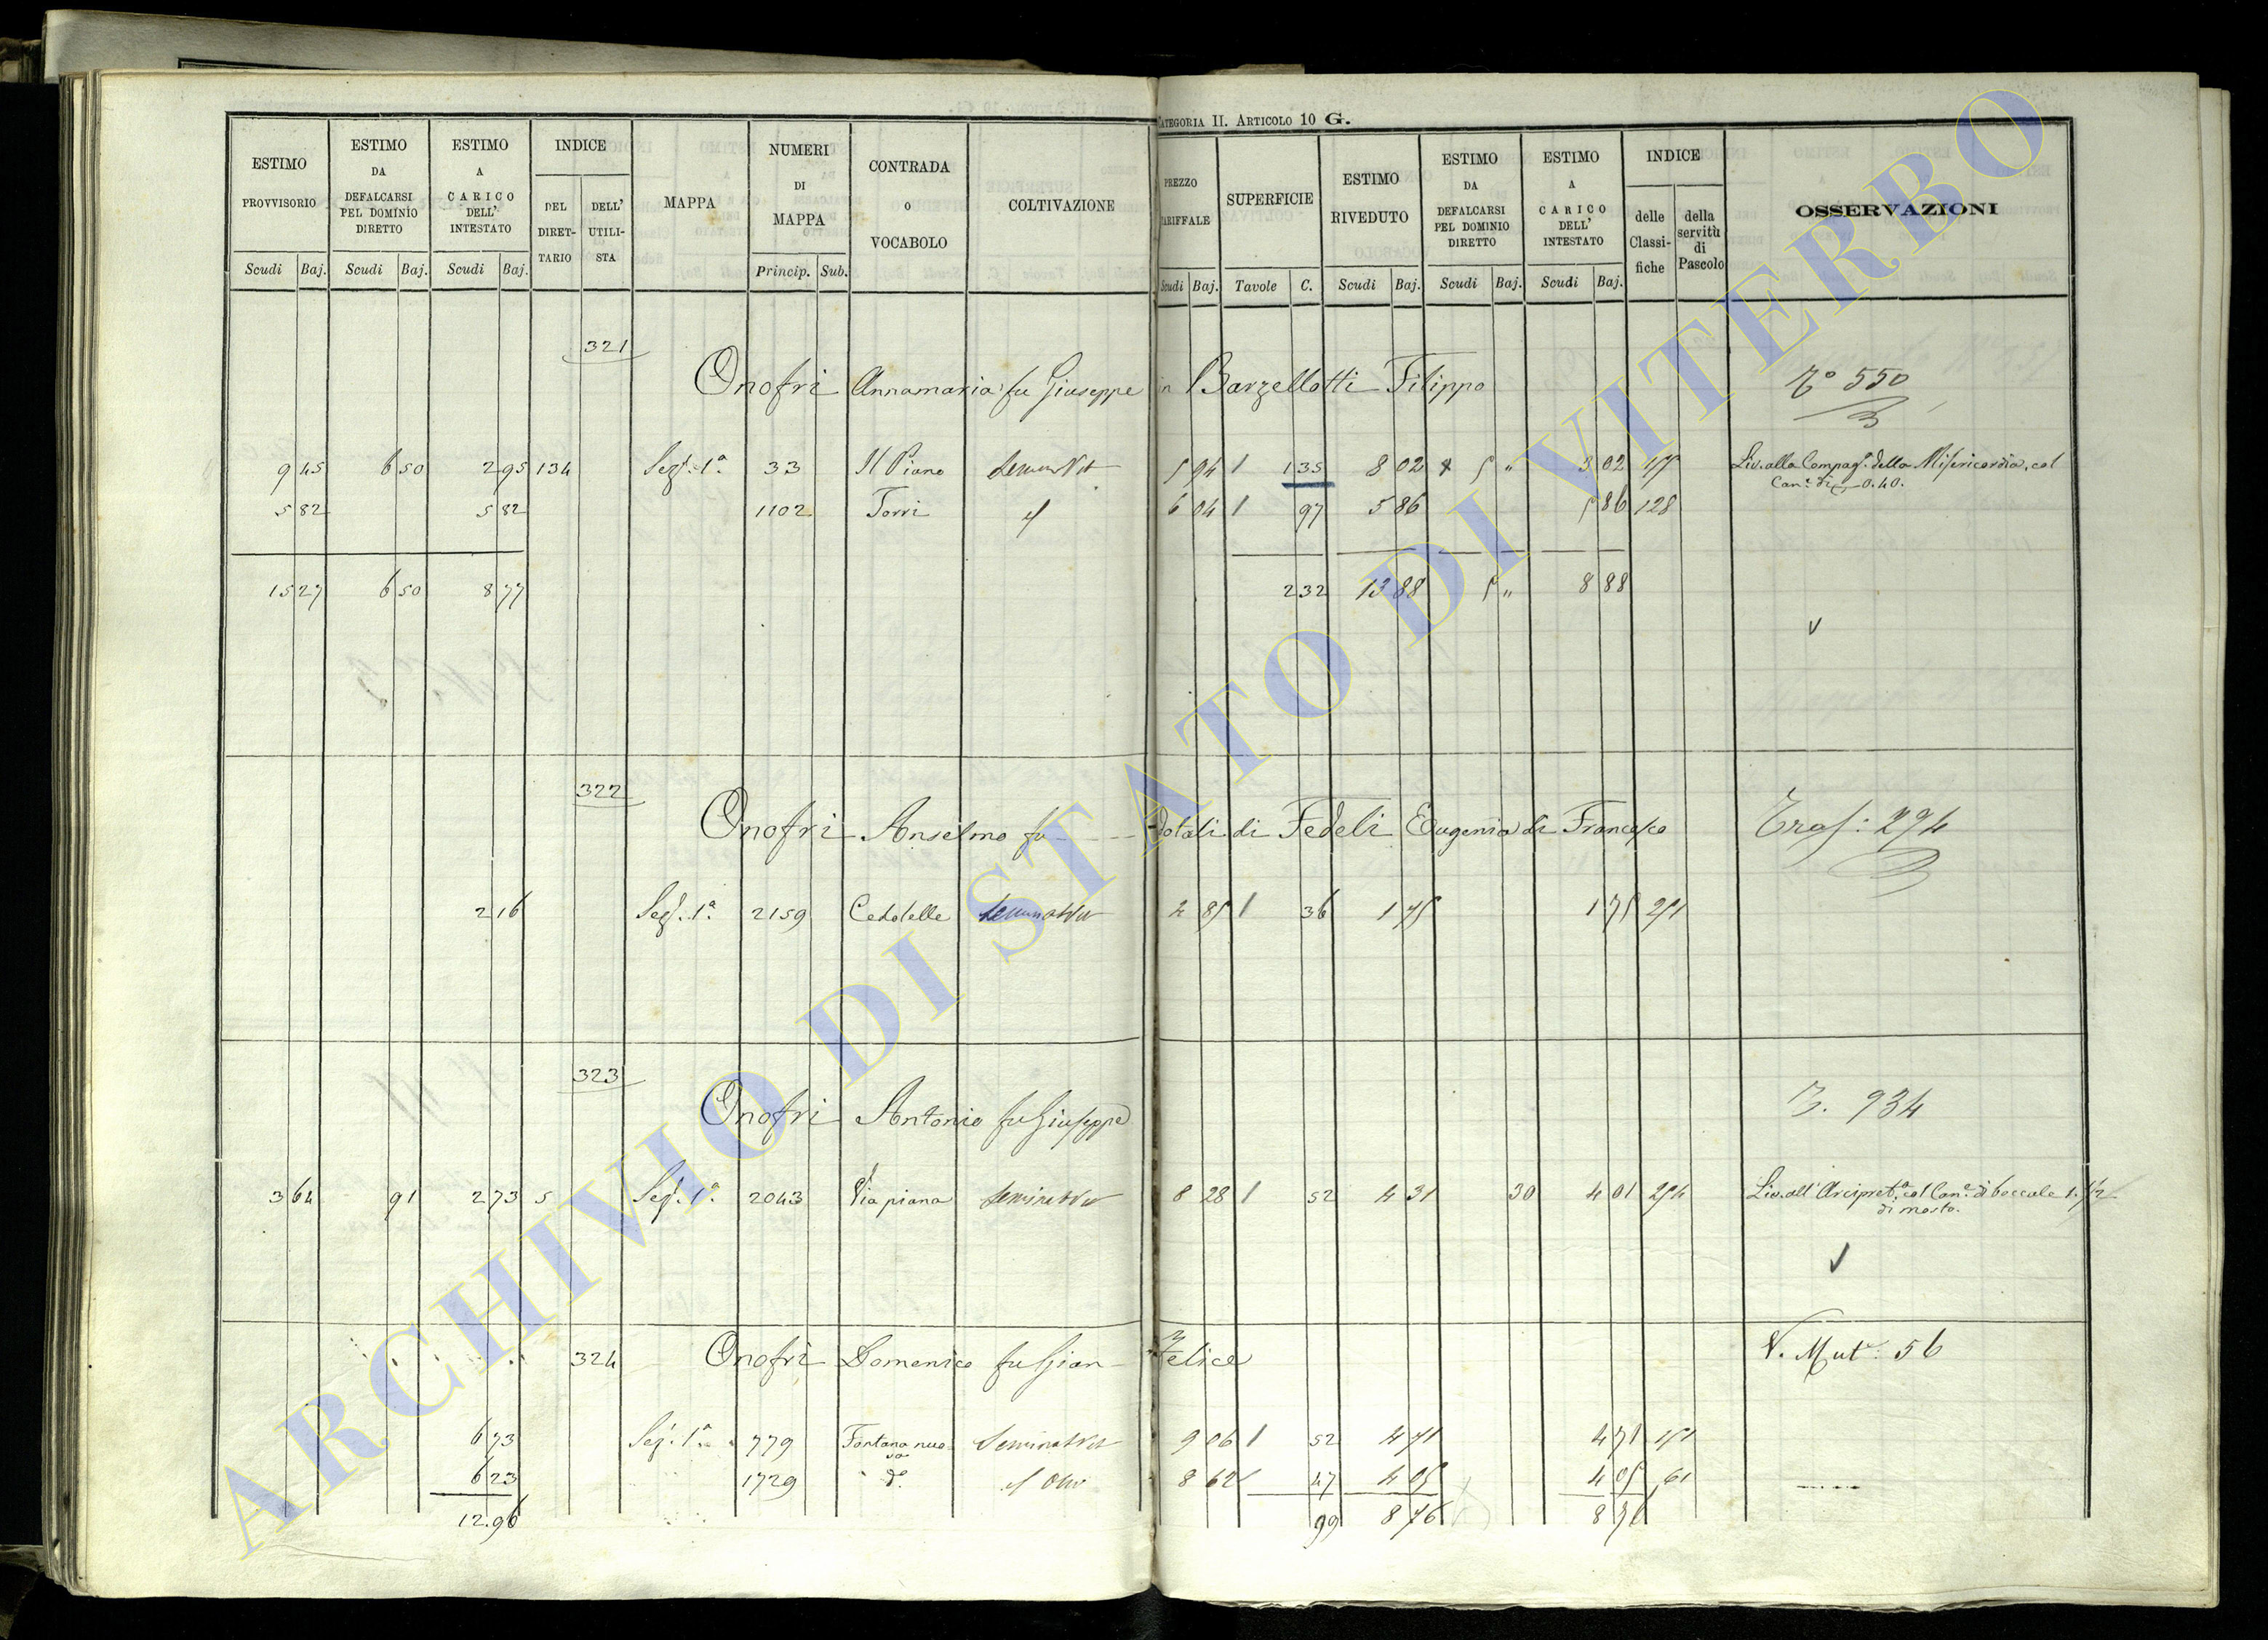 CATEGORIA II. ARTICOLO 10 G.
ESTIMO PROVVISORIO Scudi Baj.
ESTIMO DA DEFALCARSI PEL DOMINIO DIRETTO Scudi Baj.
ESTIMO A CARICO DELL' INTESTATO Scudi Baj.
INDICE DEL DIRETTARIO DELL' UTILISTA
MAPPA
NUMERI DI MAPPA Princip. Sub.
CONTRADA O VOCABOLO
COLTIVAZIONE
PREZZO TARIFFALE Scudi Baj.
SUPERFICIE Tavole C.
ESTIMO RIVEDUTO Scudi Baj.
ESTIMO DA DEFALCARSI PEL DOMINIO DIRETTO Scudi Baj.
ESTIMO A CARICO DELL' INTESTATO Scudi Baj.
INDICE delle Classifiche della servitù di Pascolo
OSSERVAZIONI
321
Onofri Annamaria fu Giuseppe in Barzellotti Filippo
550
9 45 6 50 2 95 134 Sez. 1ª 33 Il Piano 5 94 1 1 35 8 02 5 " 3 02
Liv. alla Compag. della Misericordia, col
Can. di 0.40.
5 82 5 82 1102 Torri 6 04 1 97 5 86 5 86 128
15 27 6 50 8 77 2 32 13 88 5 " 8 88
322
Onofri Anselmo fu dotali di Fedeli Eugenia di Francesco
Tras: 294
2 16 Sez. 1ª 2159 36 1 75 1 75
323
Onofri Antonio fu Giuseppe
934
3 64 91 2 73 5 Sez. 1ª 2043 Via piana 8 28 1 52 4 31 30 4 01
Liv. all' Arcipret. col Can. di boccale 1. 1/2
di mosto.
324 Onofri Domenico fu Gian Felice
V. Mut. 56
6 73 Sez. 1ª 779 Fontana nuova 9 06 1 52 4 71 4 71
6 23 1729 dº 8 62 1 47 4 05 4 05 61
12.96 99 8 76 8 76
ARCHIVIO DI STATO DI VITERBO